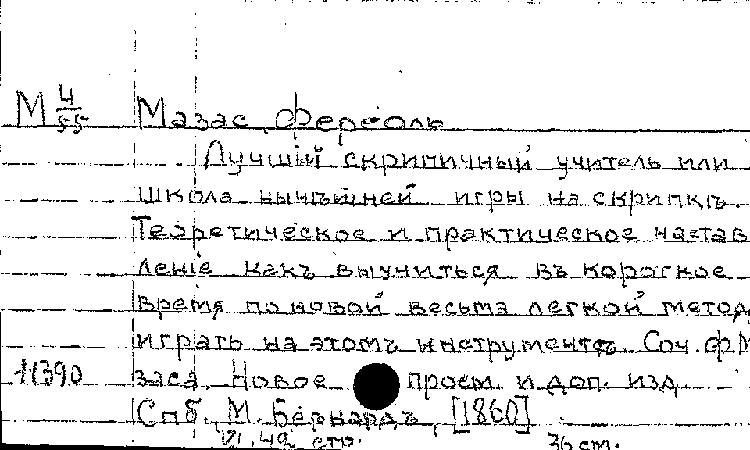 М 4/55 Мазас, Фереоль
Лучшій скрипичный учитель или
школа нынѣшней игры на скрипкѣ.
Теоретическое и практическое настав
леніе какъ выучиться въ короткое
время по новой весьма легкой метод
играть на этомъ инструментѣ. Соч. Ф. М
11390 заса. Новое просм. и доп. изд.
Спб., М. Бернардъ, [1860]
VI, 49 стр. 36 cm.